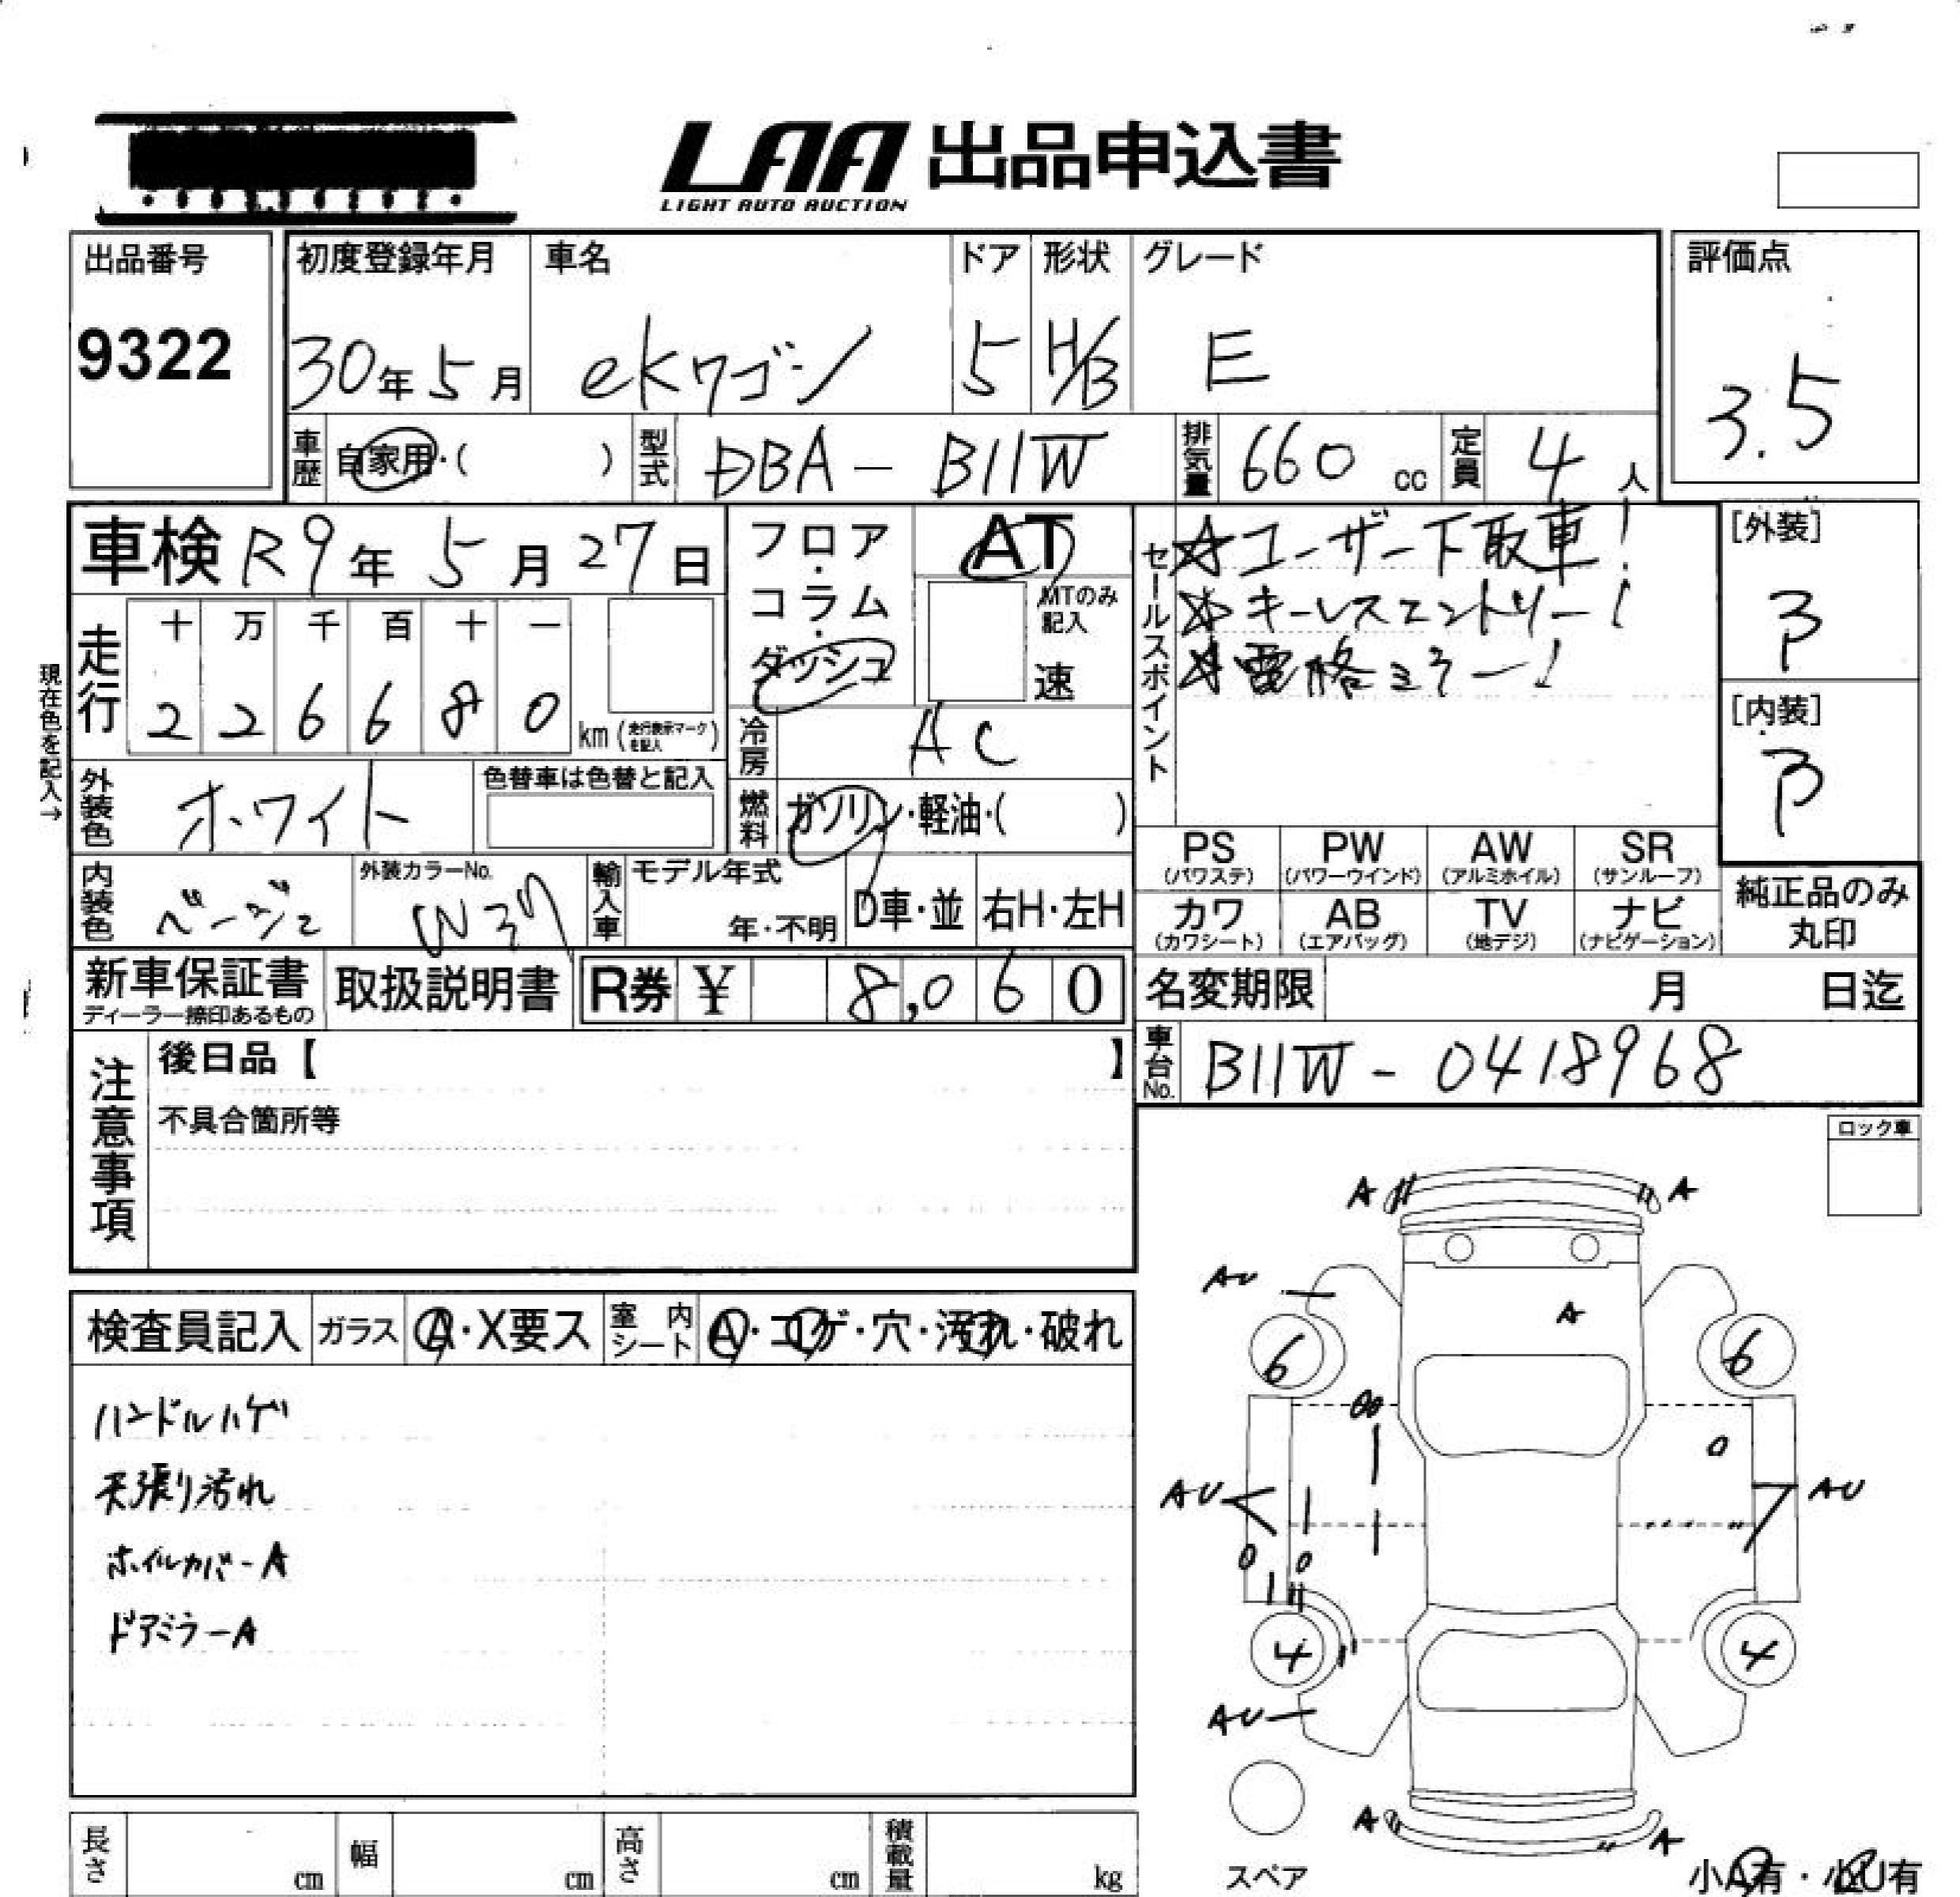 LAA 出品申込書
LIGHT AUTO AUCTION
出品番号
9322
初度登録年月
30年5月
車名
ekワゴン
ドア
5
形状
H/B
グレード
E
評価点
3.5
車歴 自家用・( )
型式 DBA-B11W
排気量 660 cc
定員 4人
車検 R9年5月27日
フロア・コラム・ダッシュ
AT
MTのみ記入
速
セールスポイント
☆ユーザー下取車!
☆キーレスエントリー!
☆電格ミラー!
[外装]
[内装]
現在色を記入→
走行
十 万 千 百 十 一
2 2 6 6 8 0
km(走行表示マークを記入)
冷房 AC
外装色 ホワイト
色替車は色替と記入
燃料 ガソリン・軽油・( )
内装色 ベージュ
外装カラーNo.
輸入車
モデル年式
年・不明
D車・並
右H・左H
PS (パワステ)
PW (パワーウインド)
AW (アルミホイル)
SR (サンルーフ)
カワ (カワシート)
AB (エアバッグ)
TV (地デジ)
ナビ (ナビゲーション)
純正品のみ丸印
新車保証書
ディーラー捺印あるもの
取扱説明書
R券 ¥ 8,060
名変期限 月 日迄
車台No. B11W-0418968
注意事項
後日品【 】
不具合箇所等
ロック車
検査員記入
ガラス A・X要ス
室内シート A・コゲ・穴・汚れ・破れ
ハンドルハゲ
天張り汚れ
ホイルカバーA
ドアミラーA
A A
AU
A
6 6
AU AU
4 4
AU
A A
スペア
小A有・小U有
長さ cm
幅 cm
高さ cm
積載量 kg